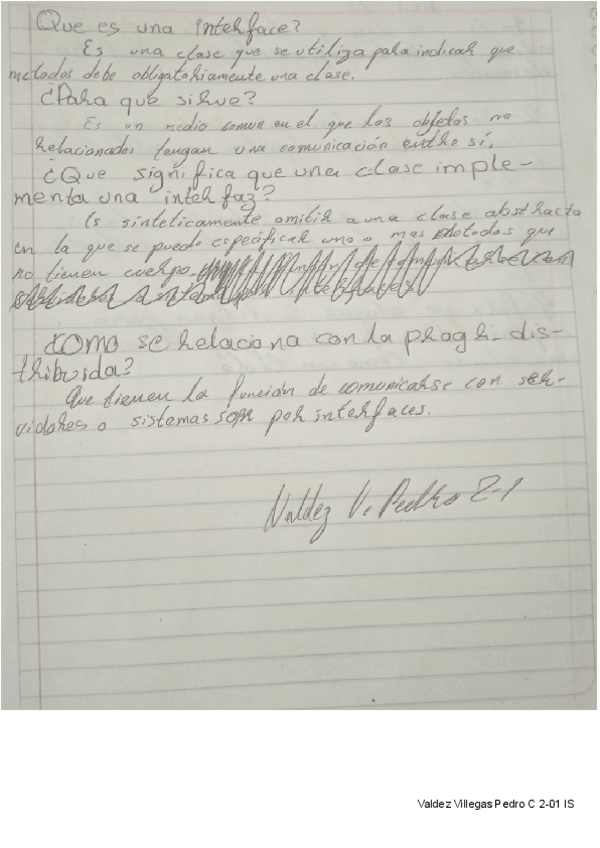 Que es una interface?
Es una clase que se utiliza para indicar que
metodos debe obligatoriamente una clase.
¿Para que sirve?
Es un medio comun en el que los objetos no
relacionados tengan una comunicación entre sí.
¿Que significa que una clase imple-
menta una interfaz?
Es sinteticamente omitir a una clase abstracta
en la que se puede especificar uno o mas metodos que
no tienen cuerpo
¿Como se relaciona con la progr. dis-
tribuida?
Que tienen la función de comunicarse con ser-
vidores o sistemas por interfaces.
Valdez V. Pedro 2-1
Valdez Villegas Pedro C 2-01 IS